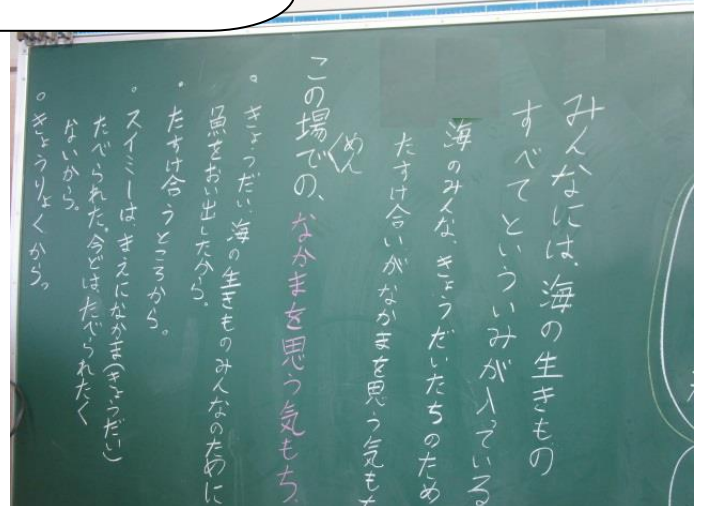 みんなには、海の生きもの
すべてといういみが入っている
海のみんな、きょうだいたちのため
たすけ合いがなかまを思う気も
この場での、なかまを思う気もち、
めん
。きょうだい、海の生きものみんなのために
魚をおい出したから。
・たすけ合うところから。
。スイミーは、まえになかま(きょうだい)
たべられた。今どはたべられたく
ないから。
。きょうりょくから。